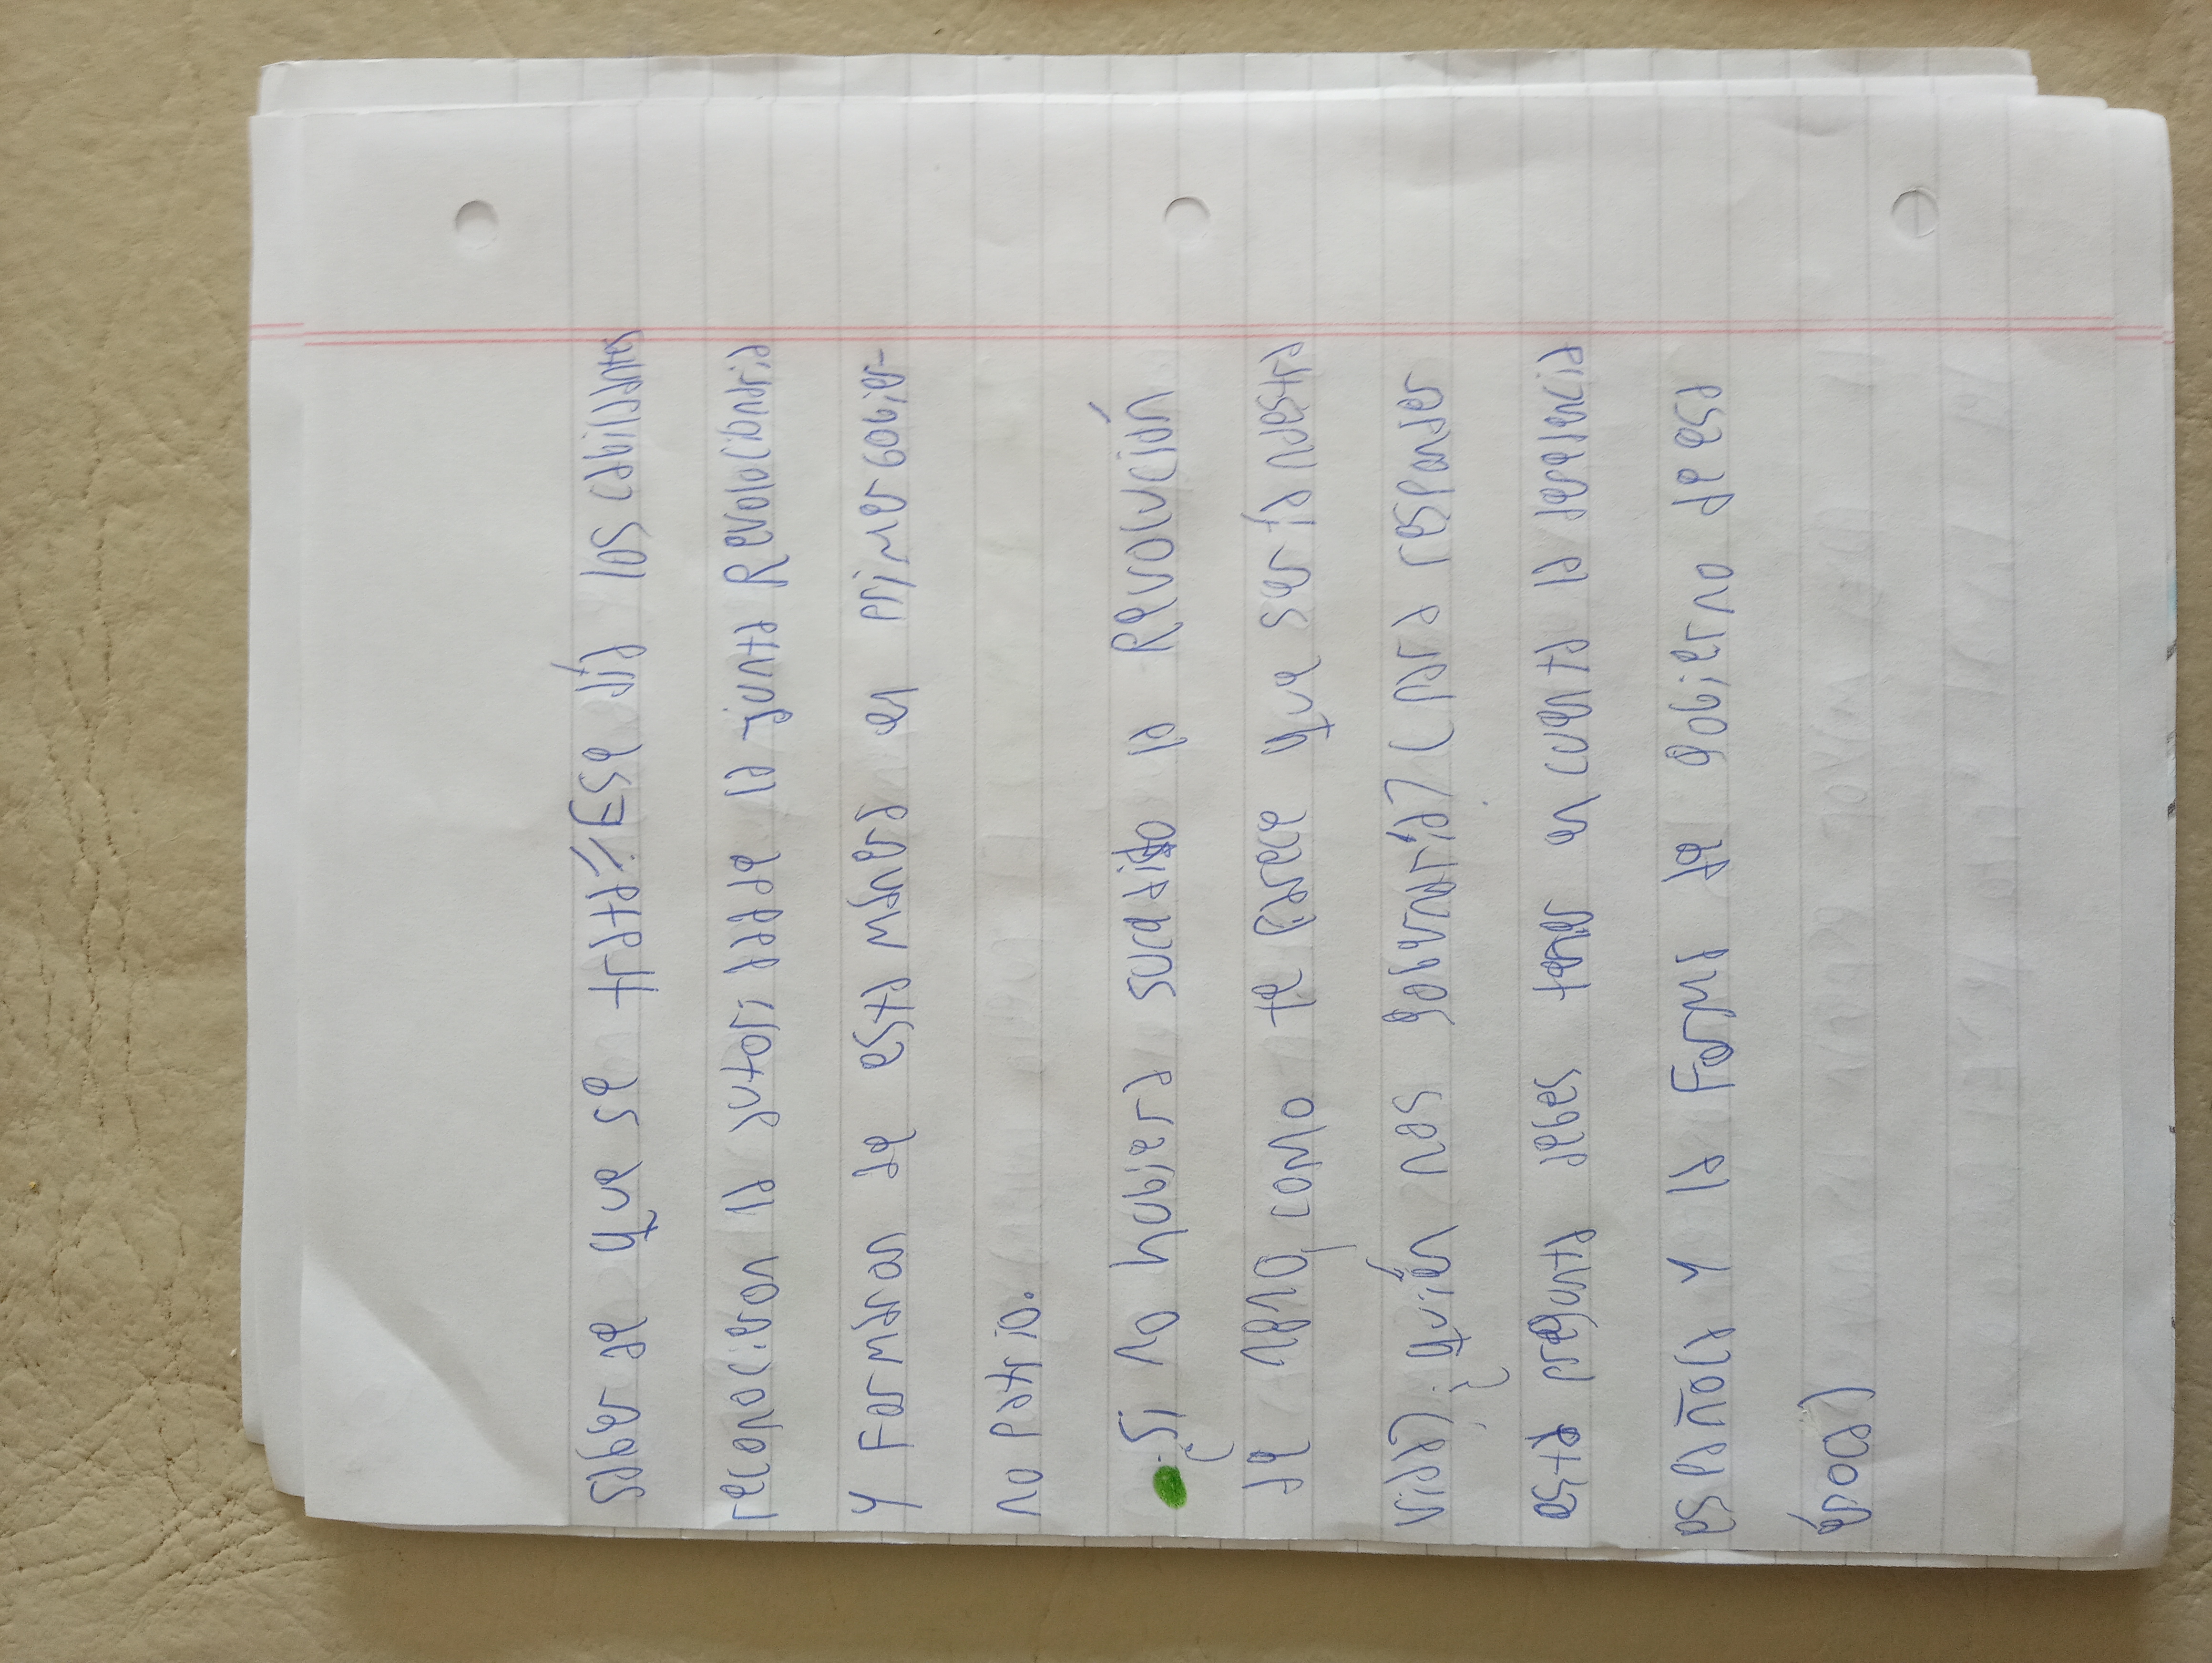 saber de que se trata. Ese día los cabildantes
reconocieron la autoridad de la junta Revolucionaria
y Formaron de esta manera en primer gobier-
no patrio.
• Si no hubiera sucedido la Revolución
de mayo ¿como te parece que sería nuestra
vida? ¿quién nos gobernaría? (para responder
esta pregunta debes tener en cuenta la dependencia
española y la forma de gobierno de esa
época)